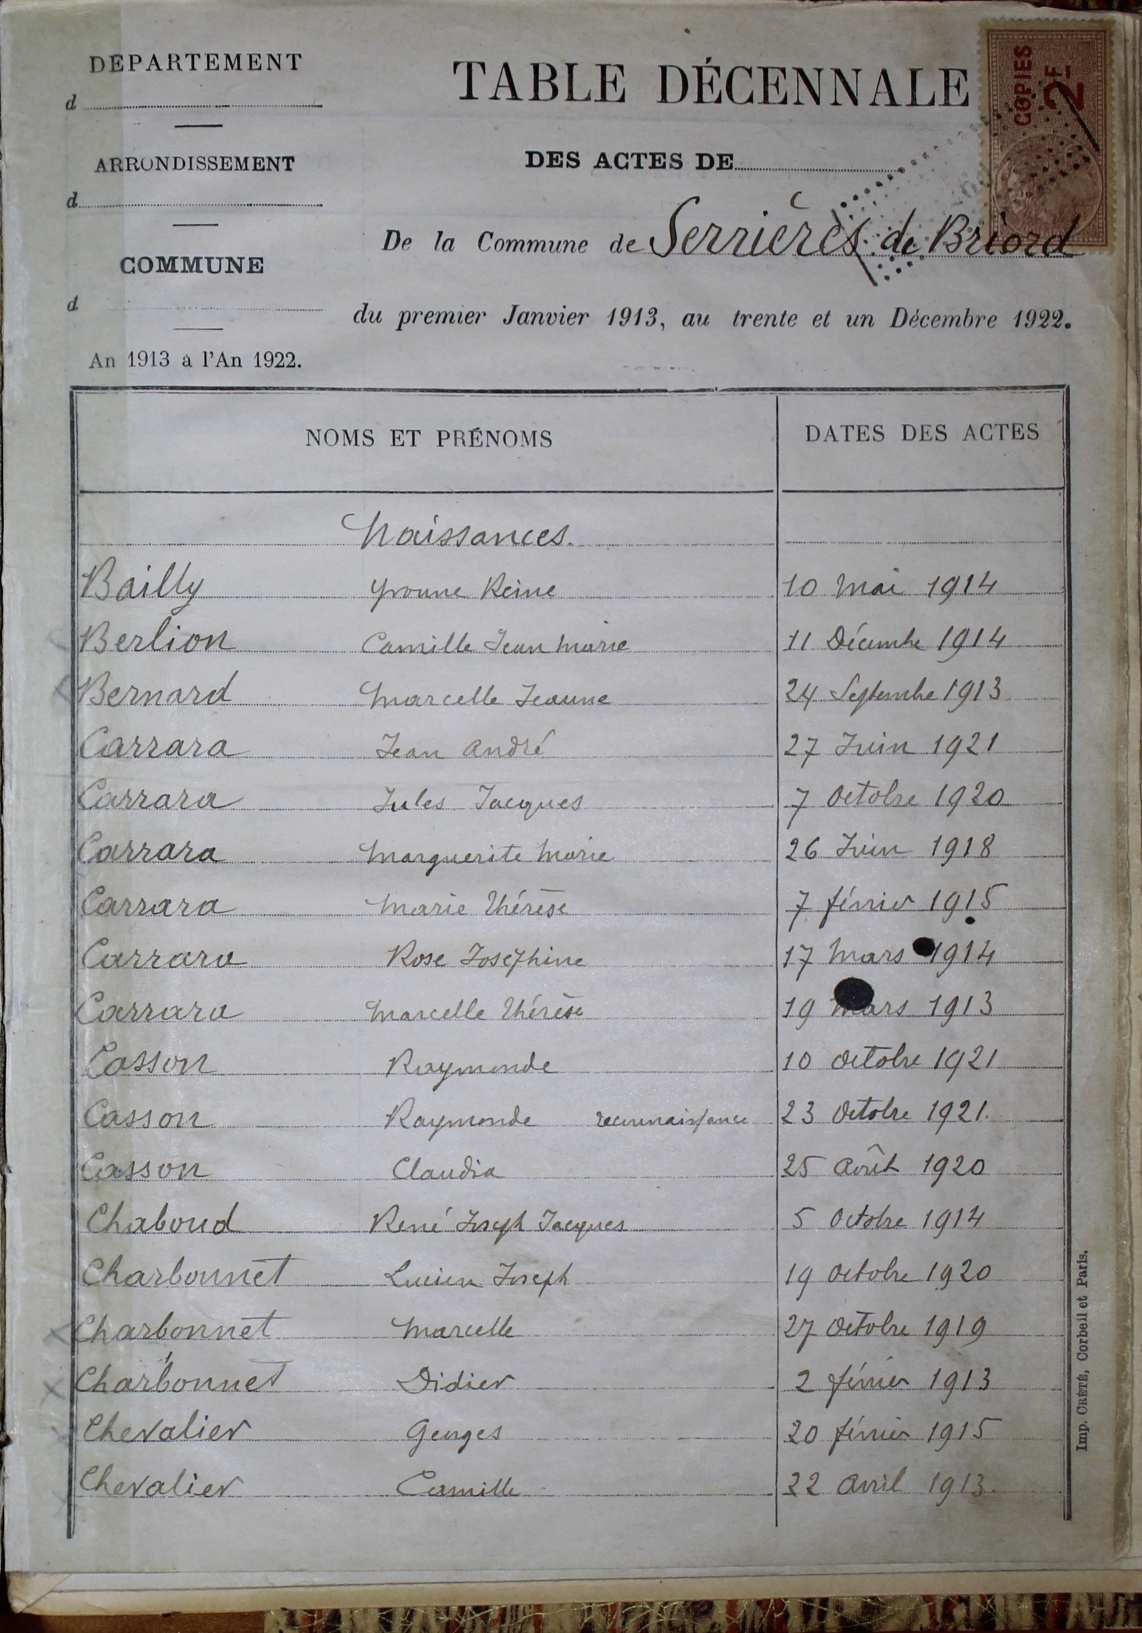 DEPARTEMENT
d
ARRONDISSEMENT
d
COMMUNE
d
An 1913 à l'An 1922.
TABLE DÉCENNALE
COPIES
2F
DES ACTES DE
De la Commune de Serrières de Briord
du premier Janvier 1913, au trente et un Décembre 1922.
NOMS ET PRÉNOMS DATES DES ACTES
Naissances.
Bailly Yvonne Reine 10 Mai 1914
Berlion Camille Jean Marie 11 Décembre 1914
Bernard Marcelle Jeanne 24 Septembre 1913
Carrara Jean André 27 Juin 1921
Carrara Jules Jacques 7 Octobre 1920
Carrara Marguerite Marie 26 Juin 1918
Carrara Marie Thérèse 7 février 1915
Carrara Rose Joséphine 17 Mars 1914
Carrara Marcelle Thérèse 19 Mars 1913
Casson Raymonde 10 Octobre 1921
Casson Raymonde reconnaissance 23 Octobre 1921.
Casson Claudia 25 Août 1920
Chaboud René Joseph Jacques 5 Octobre 1914
Charbonnet Lucien Joseph 19 Octobre 1920
Charbonnet Marcelle 27 Octobre 1919
Charbonnet Didier 2 février 1913
Chevalier Georges 20 février 1915
Chevalier Camille 22 Avril 1913.
Imp. CRÉTÉ, Corbeil et Paris.